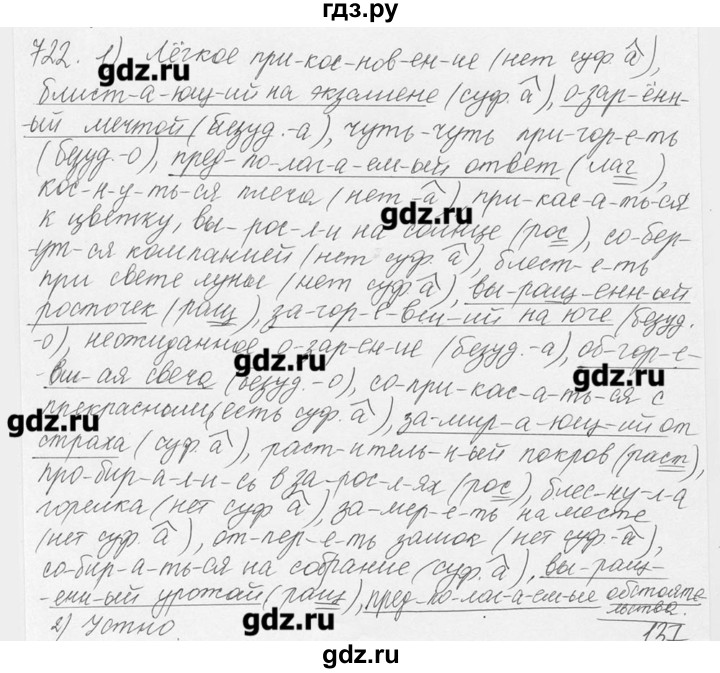 гдз.ру
722. 1) Лёгкое при-кос-нов-ен-ие (нет суф. а),
gdz.ru
блист-а-ющ-ий на экзамене (суф. а), о-зар-ённ-
-ый мечтой (безуд. -а), чуть-чуть при-гор-е-ть
(безуд. -о), пред-по-лаг-а-ем-ый ответ (лаг),
кос-н-у-ть-ся плеча (нет -а), при-кас-а-ть-ся
gdz.ru
к цветку, вы-рос-л-и на солнце (рос), со-бер-
-ут-ся компанией (нет суф. а), блест-е-ть
при свете луны (нет суф. а), вы-ращ-енн-ый
росточек (ращ), за-гор-е-вш-ий на юге (безуд.
-о), неожиданное о-зар-ен-ие (безуд. -а), об-гор-е-
gdz.ru gdz.ru
-вш-ая свеча (безуд. -о), со-при-кас-а-ть-ся с
gdz.ru
прекрасным (есть суф. а), за-мир-а-ющ-ий от
страха (суф. а), раст-ительн-ый покров (раст),
про-бир-а-л-и-сь в за-рос-л-ях (рос), блес-ну-л-а
gdz.ru
горелка (нет суф. а), за-мер-е-ть на месте
(нет суф. а), от-пер-е-ть замок (нет суф. -а),
со-бир-а-ть-ся на собрание (суф. а), вы-ращ-
-енн-ый урожай (ращ), пред-по-лаг-а-ем-ые обстояте-
льства.
2) Устно.
gdz.ru
gdz.ru